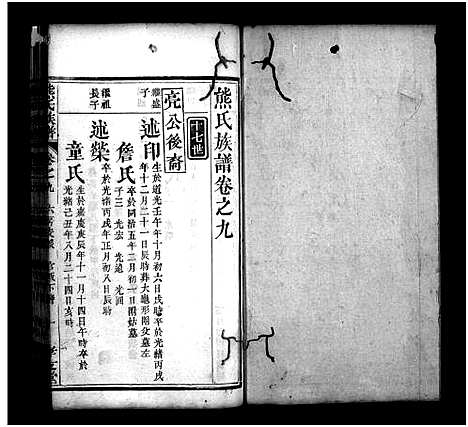 熊氏族譜卷之九
十七世
亮公後裔
維盛
子
述印
生於道光壬午年十月初六日戌時卒於光緒丙戌
年十二月二十一日辰時葬大亀形周交墓左
詹氏
卒於同治五年二月初一日周姑墓
子三 光宏 光遠 光圓
繼祖
長子
述榮
卒於光緒丙戌年正月初八日辰時
童氏
生於嘉慶庚辰年十一月十四日午時卒於
光緒己丑年八月二十四日亥時
熊氏族譜
卷之九